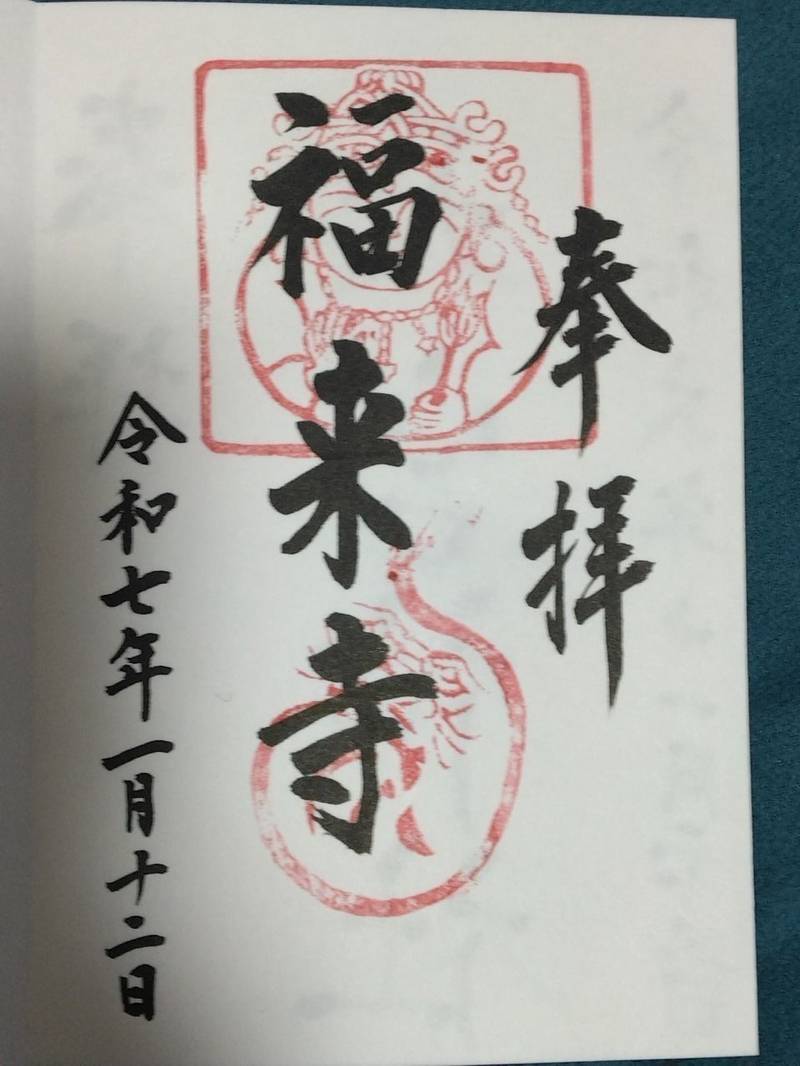 奉拝
福来寺
令和七年一月十二日